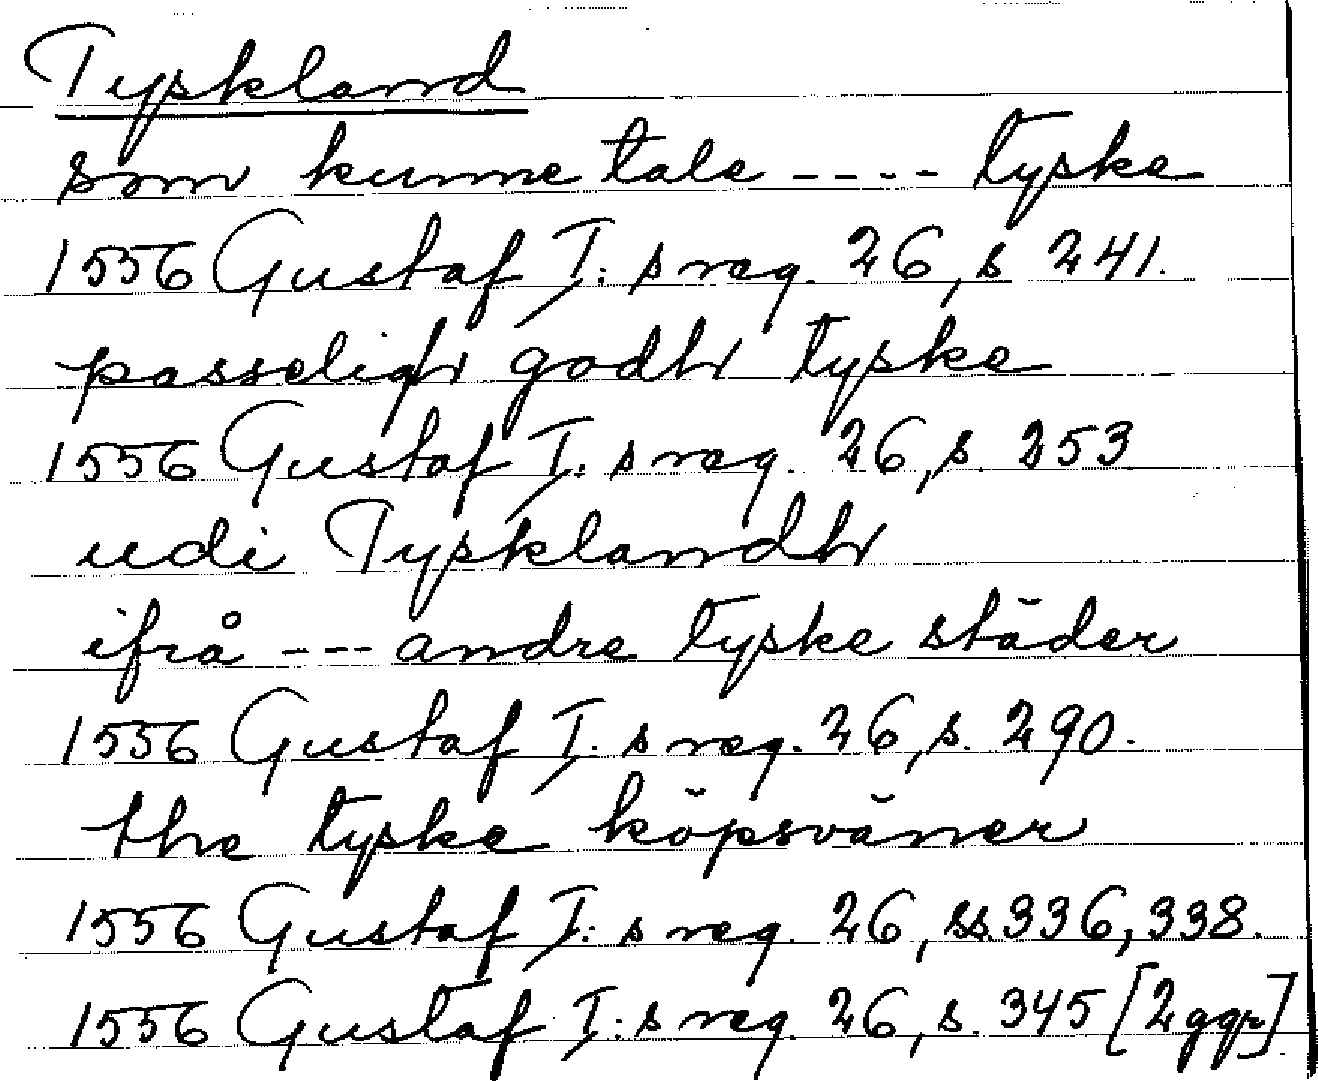 Tyskland
som kunne tale ---- tyske
1556 Gustaf I: s reg. 26, s 241.
passeligh godh tyske
1556 Gustaf I: s reg. 26, s. 253
udi Tysklandh
ifrå --- andre tyske städer
1556 Gustaf I: s reg. 26, s. 290.
the tyske köpsväner
1556 Gustaf I: s reg. 26, ss. 336, 338.
1556 Gustaf I: s reg. 26, s. 345 [2 ggr].